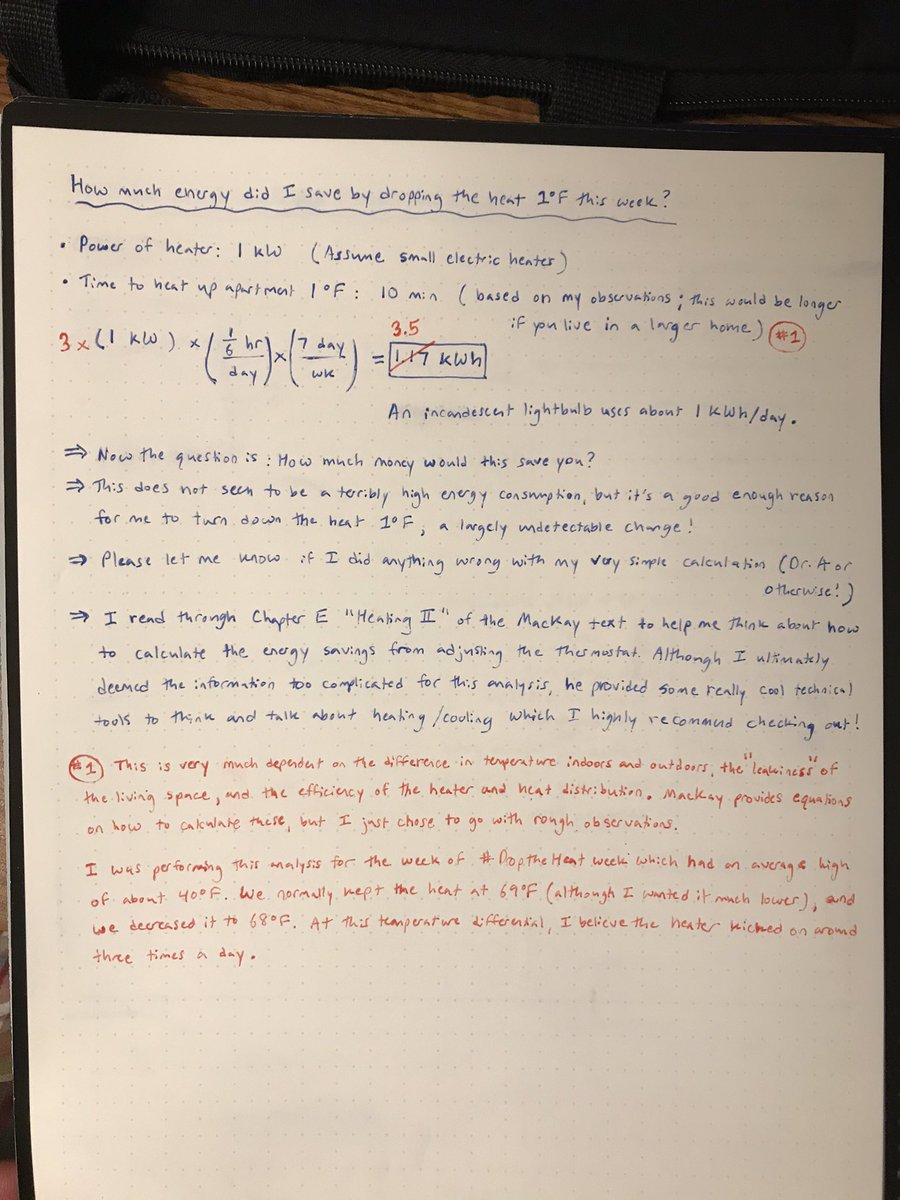 How much energy did I save by dropping the heat 1°F this week?
• Power of heater: 1 kW (Assume small electric heater)
• Time to heat up apartment 1°F: 10 min (based on my observations; this would be longer
if you live in a larger home) #1
3 × (1 kW) × (1/6 hr/day) × (7 day/wk) = 1.17 kWh 3.5
An incandescent lightbulb uses about 1 kWh/day.
⇒ Now the question is: How much money would this save you?
⇒ This does not seem to be a terribly high energy consumption, but it's a good enough reason
for me to turn down the heat 1°F, a largely undetectable change!
⇒ Please let me know if I did anything wrong with my very simple calculation (Dr. A or
otherwise!)
⇒ I read through Chapter E "Heating II" of the MacKay text to help me think about how
to calculate the energy savings from adjusting the thermostat. Although I ultimately
deemed the information too complicated for this analysis, he provided some really cool technical
tools to think and talk about heating/cooling which I highly recommend checking out!
#1 This is very much dependent on the difference in temperature indoors and outdoors, the "leakiness" of
the living space, and the efficiency of the heater and heat distribution. MacKay provides equations
on how to calculate these, but I just chose to go with rough observations.
I was performing this analysis for the week of #DroptheHeat week which had an average high
of about 40°F. We normally kept the heat at 69°F (although I wanted it much lower), and
we decreased it to 68°F. At this temperature differential, I believe the heater kicked on around
three times a day.